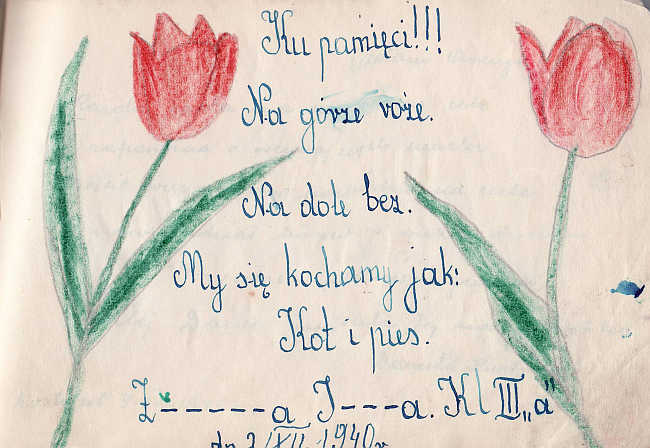 Ku pamięci!!!
Na górze róże.
Na dole bez.
My się kochamy jak:
Kot i pies.
Z------a J---a. Kl III„a"
dn 2/XII 1940r